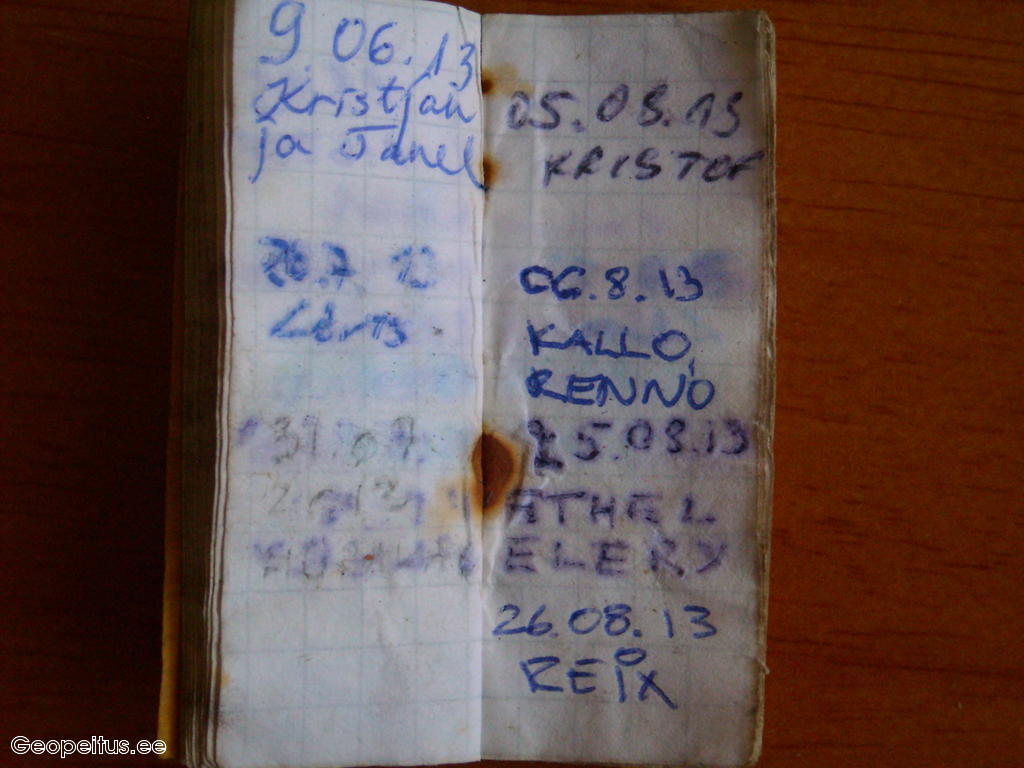 9 06.13
Kristjan
ja Janel
31.07.
05.08.13
KRISTOF
06.8.13
KALLO,
RENNO
25.08.13
ETHEL
ELERY
26.08.13
REiX
Geopeitus.ee